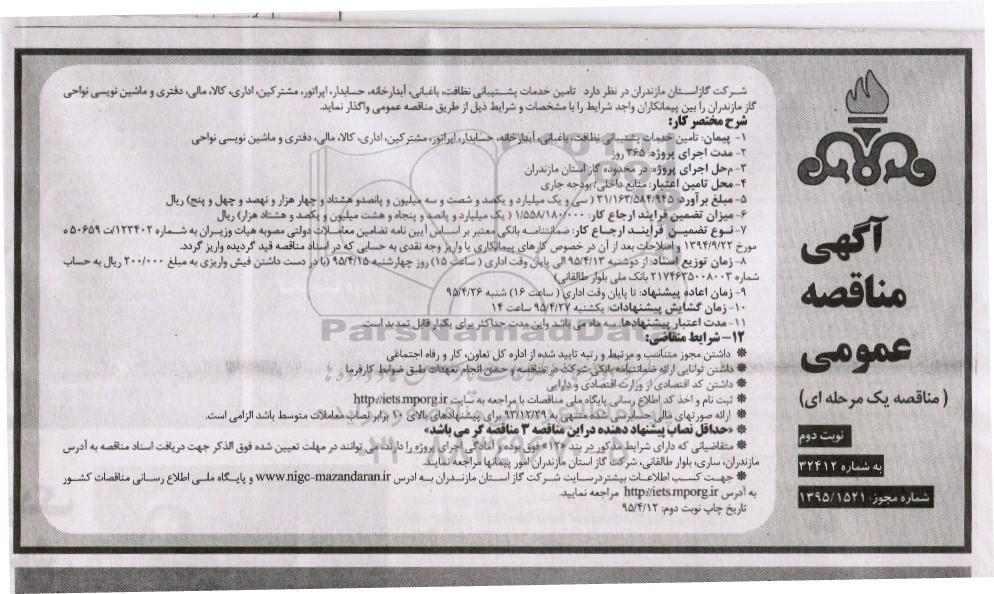 آگهی
مناقصه
عمومی
( مناقصه یک مرحله ای)
نوبت دوم
به شماره ۳۲۴۱۲
شماره مجوز: ۱۳۹۵/۱۵۲۱
شرکت گازاستان مازندران در نظر دارد تامین خدمات پشتیبانی نظافت، باغبانی، آبدارخانه، حسابدار، اپراتور، مشترکین، اداری، کالا، مالی، دفتری و ماشین نویسی نواحی
گاز مازندران را بین پیمانکاران واجد شرایط را با مشخصات و شرایط ذیل از طریق مناقصه عمومی واگذار نماید.
شرح مختصر کار:
۱- پیمان: تامین خدمات پشتیبانی نظافت، باغبانی، آبدارخانه، حسابدار، اپراتور، مشترکین، اداری، کالا، مالی، دفتری و ماشین نویسی نواحی
۲- مدت اجرای پروژه: ۳۶۵ روز
۳- محل اجرای پروژه: در محدوده گاز استان مازندران
۴- محل تامین اعتبار: منابع داخلی/ بودجه جاری
۵- مبلغ برآورد: ۳۱/۱۶۳/۵۸۴/۹۴۵ ( سی و یک میلیارد و یکصد و شصت و سه میلیون و پانصدو هشتاد و چهار هزار و نهصد و چهل و پنج) ریال
۶- میزان تضمین فرایند ارجاع کار: ۱/۵۵۸/۱۸۰/۰۰۰ ( یک میلیارد و پانصد و پنجاه و هشت میلیون و یکصد و هشتاد هزار) ریال
۷- نوع تضمین فرآیند ارجاع کار: ضمانتنامه بانکی معتبر بر اساس آیین نامه تضامین معاملات دولتی مصوبه هیات وزیران به شماره ۱۲۳۴۰۲/ت ۵۰۶۵۹ ه
مورخ ۱۳۹۴/۹/۲۲ و اصلاحات بعد از آن در خصوص کارهای پیمانکاری یا واریز وجه نقدی به حسابی که در اسناد مناقصه قید گردیده واریز گردد.
۸- زمان توزیع اسناد: از دوشنبه ۹۵/۴/۱۳ الی پایان وقت اداری ( ساعت ۱۵) روز چهارشنبه ۹۵/۴/۱۵ (با در دست داشتن فیش واریزی به مبلغ ۲۰۰/۰۰۰ ریال به حساب
شماره ۲۱۷۴۶۳۵۰۰۸۰۰۳ بانک ملی بلوار طالقانی)
۹- زمان اعاده پیشنهاد: تا پایان وقت اداری ( ساعت ۱۶) شنبه ۹۵/۴/۲۶
۱۰- زمان گشایش پیشنهادات: یکشنبه ۹۵/۴/۲۷ ساعت ۱۴
۱۱- مدت اعتبار پیشنهادها: سه ماه می باشد واین مدت حداکثر برای یکبار قابل تمدید است.
۱۲- شرایط متقاضی:
* داشتن مجوز متناسب و مرتبط و رتبه تایید شده از اداره کل تعاون، کار و رفاه اجتماعی
* داشتن توانایی ارائه ضمانتنامه بانکی شرکت در مناقصه و حسن انجام تعهدات طبق ضوابط کارفرما
* داشتن کد اقتصادی از وزارت اقتصادی و دارایی
* ثبت نام و اخذ کد اطلاع رسانی پایگاه ملی مناقصات با مراجعه به سایت http://iets.mporg.ir
* ارائه صورتهای مالی حسابرسی شده منتهی به ۹۳/۱۲/۲۹ برای پیشنهادهای بالای ۱۰ برابر نصاب معاملات متوسط باشد الزامی است.
* «حداقل نصاب پیشنهاد دهنده در این مناقصه ۳ مناقصه گر می باشد»
* متقاضیانی که دارای شرایط مذکور در بند «۱۲» فوق بوده و آمادگی اجرای پروژه را دارند، می توانند در مهلت تعیین شده فوق الذکر جهت دریافت اسناد مناقصه به آدرس
مازندران، ساری، بلوار طالقانی، شرکت گاز استان مازندران امور پیمانها مراجعه نمایند.
* جهت کسب اطلاعات بیشتر درسایت شرکت گاز استان مازندران به آدرس www.nigc-mazandaran.ir و پایگاه ملی اطلاع رسانی مناقصات کشور
به آدرس http://iets.mporg.ir مراجعه نمایید.
تاریخ چاپ نوبت دوم: ۹۵/۴/۱۲
ParsNamadData